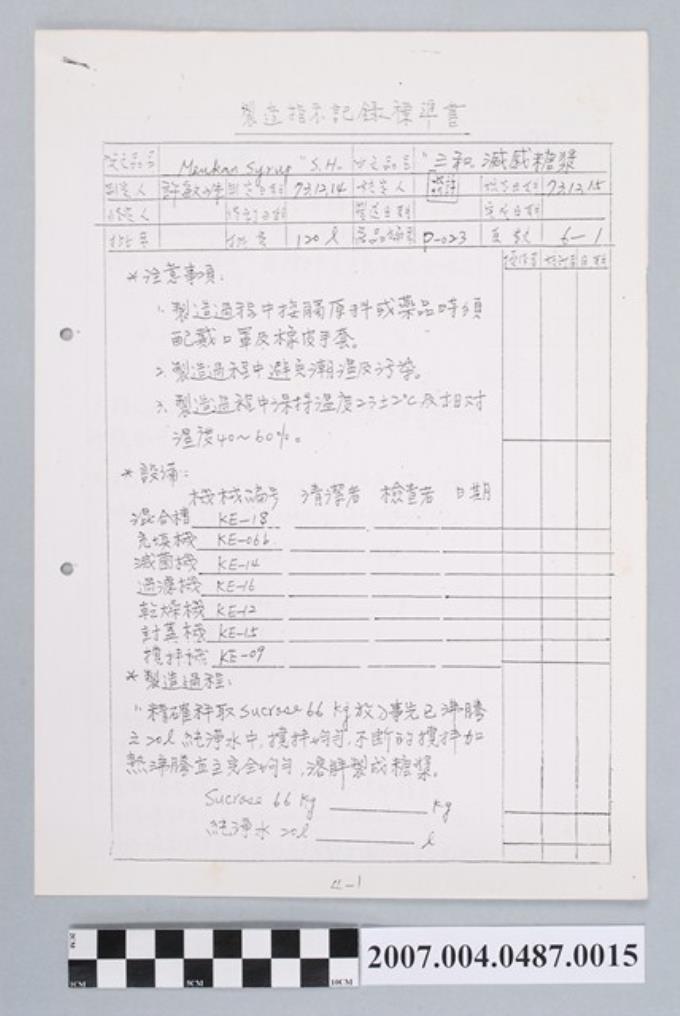 製造指示記錄標準書
Meukan Syrup "S.H. "三和滅感糖漿
制定人 許敏 制定日期 73.12.14 核定人 核定日期 73.12.15
批量 120 l P-023 頁數 6-1
*注意事項:
1. 製造過程中接觸原料或藥品時須
配戴口罩及橡皮手套。
2. 製造過程中避免潮溼及汚染。
3. 製造過程中保持溫度25±2℃及相对
溼度40~60%。
*設備:
機械編号 清潔者 檢查者 日期
混合槽 KE-18
充填機 KE-066
滅菌機 KE-14
過濾機 KE-16
乾燥機 KE-12
封蓋機 KE-15
攪拌機 KE-09
*製造過程:
1) 精確秤取Sucrose 66 kg 放入事先已沸騰
之20l 純淨水中,攪拌均勻,不斷的攪拌加
熱沸騰直至完全均勻,溶解製成糖漿。
Sucrose 66 kg kg
純淨水 20l l
4-1
2CM
1CM 5CM 10CM
2007.004.0487.0015